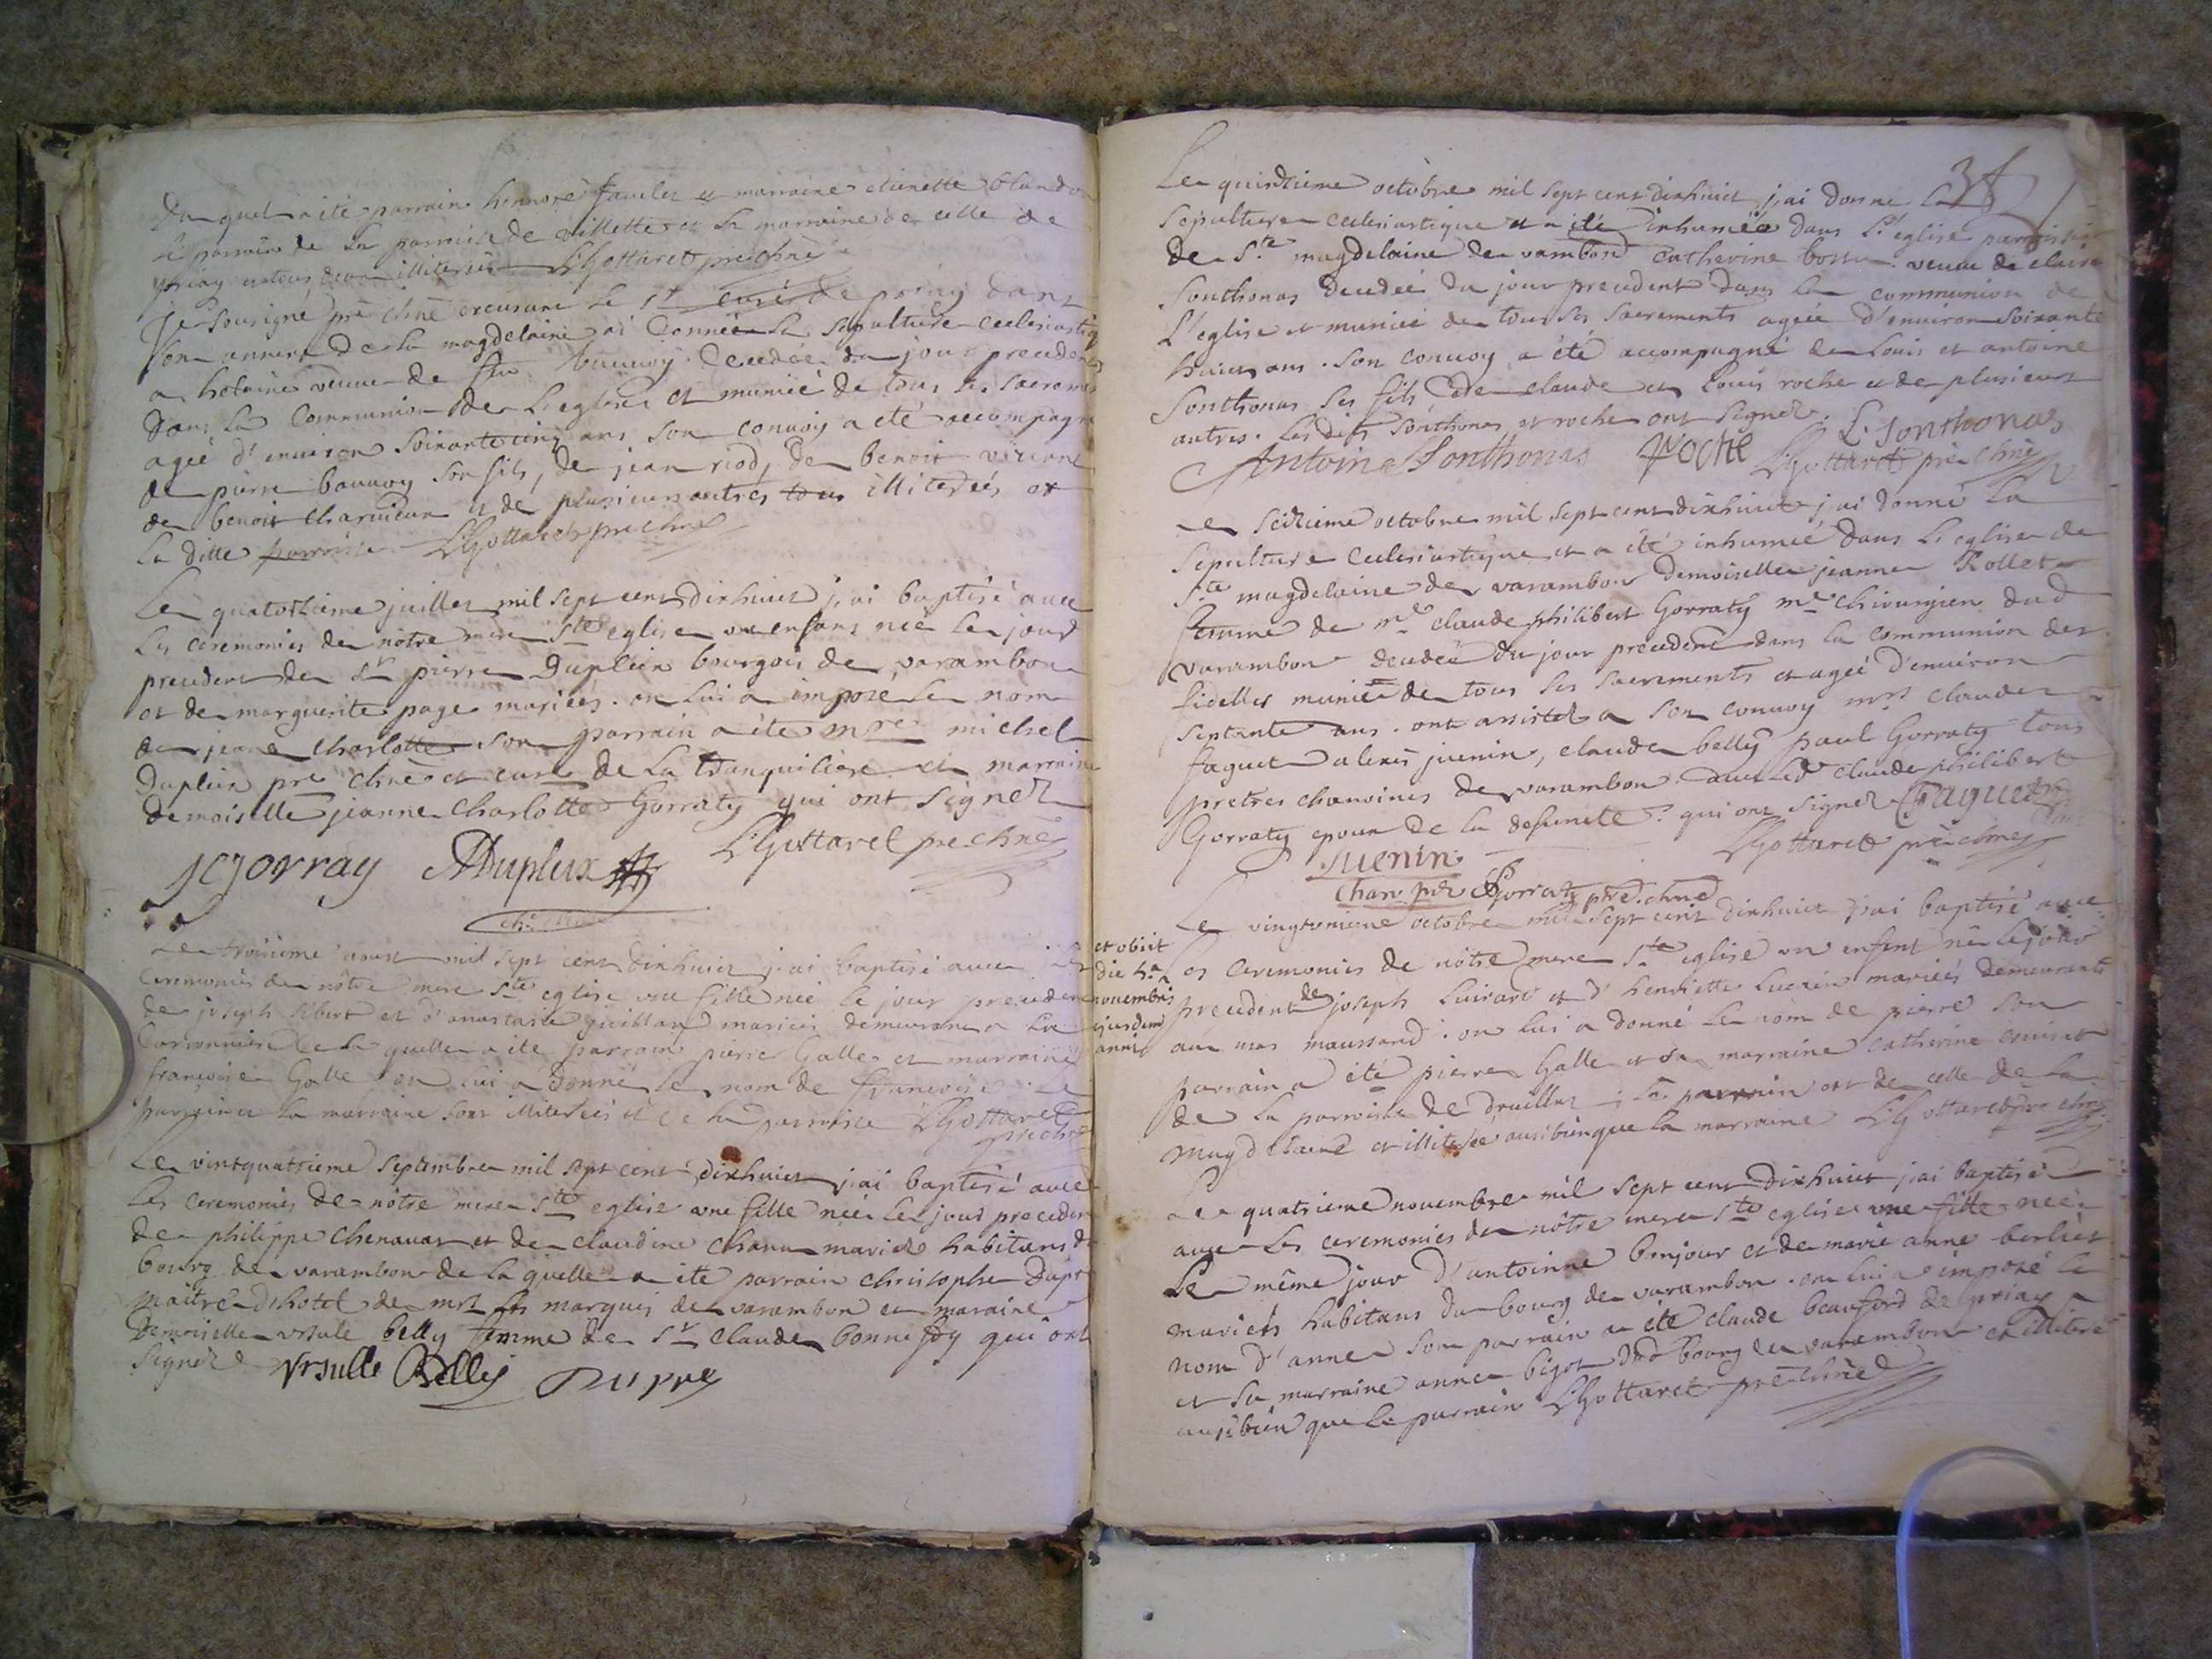 Duquel a été parrain honnore et marraine etienette
Le parrain de la parroisse de villette et la marraine de celle de
priay L Gottaret pre chne
Je sousigné pre chne excusant le Sr curé de priay dans
son annexe de la magdelaine ai donnée la sepulture ecclesiastiq
a veuve de feu decedée du jour precedent
dans la communion de L'eglise et muniée de tous les sacremens
ageé d'environ soixante cinq ans son convoy a été accompagné
de pierre bouvoy son fils, de jean riod, de benoit
de benoit charvieux et de plusieurs autres tous illiterées de
la ditte parroisse L Gottaret pre chne
Le quatorzieme juillet mil sept cent dixhuict j'ai baptisé avec
les ceremonies de nôtre mere Ste eglise un enfans neé le jour
precedent de Sr pierre Duplein bourgois de varambon
et de marguerite page mariées. on lui a imposé le nom
de jeane charlotte son parrain a éte mre michel
Duplein pre chne et curé de La tranquiliere et marraine
demoiselle jeanne charlotte Gorraty qui ont signez
jc gorray MDuplux L Gottaret pre chne
Le troisieme aoust mil sept cent dixhuict j'ai baptisé avec les
ceremonies de nôtre mere Ste eglise une fille neé le jour precedent
de joseph sibert et d'anastasie guillard mariées demeurant a la
de la quelle a éte parrain pierre Galle et marraine
françoise Galle on lui a donné le nom de françoise. Le
parrain et la marraine sont illiterées et de la parroisse L Gottaret
pre chne
Le vintquatrieme septembre mil sept cent dixhuict j'ai baptisé avec
les ceremonies de nôtre mere Ste eglise une fille neé le jour preceden
de philippe chenavas et de claudine mariés habitans du
bourg de varambon de la quelle a éte parrain christophe Dupré
maitre d'hotel de mr le marquis de varambon et maraine
Demoiselle ursule belly femme de Sr claude bonnefoy qui ont
signez Ursulle Belly Dupre
Le quinzieme octobre mil sept cent dixhuict j'ai donné la
sepulture ecclesiastique et a été inhumée dans L'eglise parroissi
de Ste magdelaine de varambon Catherine veuve de claude
Sonthonas decedeé du jour precedent dans la communion de
L'eglise et muniée de tous ses sacrements ageé d'environ soixante
huict ans. son convoy a été accompagné de Louis et antoine
Sonthonas ses fils, de claude et Louis roche et de plusieurs
autres. Les dits Sonthonas et roche ont signez. L. Sonthonas
Antoine Sonthonas roche L Gottaret pre chne
Le seizieme octobre mil sept cent dixhuict j'ai donné la
sepulture ecclesiastique et a été inhumeé dans L'eglise de
Ste magdelaine de varambon demoiselle jeanne Rollet
femme de mr claude philibert Gorraty mre chirurgien dud
varambon decedeé du jour precedent dans la communion des
fidelles muniée de tous ses sacrements et ageé d'environ
septante ans. ont assistez a son convoy mrs claude
faguet alexis juenin, claude belly paul Gorraty tous
pretres chanoines de varambon avec led claude philibert
Gorraty epoux de la defuncte. qui ont signez Faguet
juenin L Gottaret pre chne
chan. pre Gorraty ptre. chne
Le vingtunieme octobre mil sept cent dixhuict j'ai baptisé avec
les ceremonies de nôtre mere Ste eglise un enfent né le jour
precedent de joseph et d'henriette mariées demeurants
au mas maussand. on lui a donné le nom de pierre son
parrain a été pierre Galle et sa marraine catherine
de la parroisse de druillas; Le parrain est de celle de la
magdelaine et illiterée ausibien que la marraine L Gottaret pre chne
et obiit
die
novembris
ejusdem
anni
Le quatrieme novembre mil sept cent dixhuict j'ai baptisé
avec les ceremonies de nôtre mere Ste eglise une fille neé
le même jour d'antoinne bonjour et de marie anne berliet
mariés habitans du bourg de varambon. on lui a imposé le
nom d'anne son parrain a éte claude beauford de priay
et sa marraine anne bijot dud bourg de varambon et illiteré
ausibien que le parrain L Gottaret pre chne